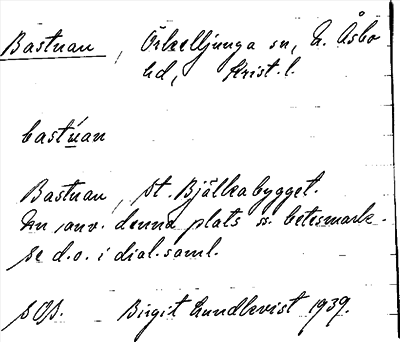 Bastuan, Örkelljunga sn, N. Åsbo
hd, Krist. l.
bastúan
Bastuan, St. Bjälkabygget.
En anv. denna plats ss. betesmark.
se d.o. i dial.saml.
Birgit Lundkvist 1939.